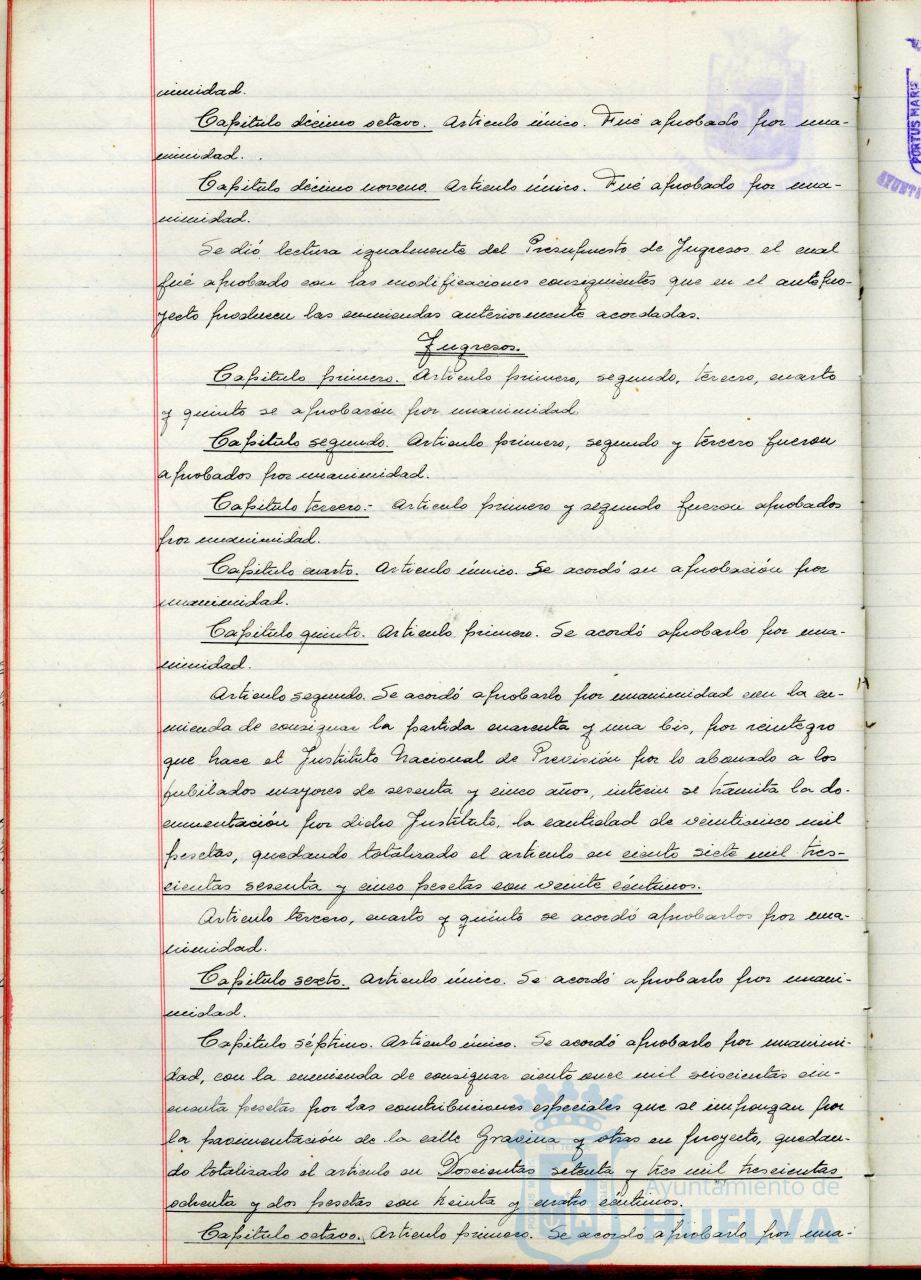 nimidad.
Capitulo décimo octavo. Articulo único. Fué aprobado por una-
nimidad. .
Capitulo décimo noveno. Articulo único. Fué aprobado por una-
nimidad.
Se dió lectura igualmente del Presupuesto de Ingresos el cual
fué aprobado con las modificaciones consiguientes que en el antepro-
yecto producen las enmiendas anteriormente acordadas.
Ingresos.
Capitulo primero. Articulo primero, segundo, tercero, cuarto
y quinto se aprobaron por unanimidad.
Capitulo segundo. Articulo primero, segundo y tercero fueron
aprobados por unanimidad.
Capitulo tercero.- Articulo primero y segundo fueron aprobados
por unanimidad.
Capitulo cuarto. Articulo único. Se acordó su aprobación por
unanimidad.
Capitulo quinto. Articulo primero. Se acordó aprobarlo por una-
nimidad.
Articulo segundo. Se acordó aprobarlo por unanimidad con la en-
mienda de consignar la partida cuarenta y una bis, por reintegro
que hace el Instituto Nacional de Previsión por lo abonado a los
jubilados mayores de sesenta y cinco años, interin se tramita la do-
cumentación por dicho Instituto, la cantidad de veinticinco mil
pesetas, quedando totalizado el articulo en ciento siete mil tres-
cientas sesenta y cinco pesetas con veinte céntimos.
Articulo tercero, cuarto y quinto se acordó aprobarlos por una-
nimidad.
Capitulo sexto. Articulo único. Se acordó aprobarlo por unani-
midad.
Capitulo séptimo. Articulo único. Se acordó aprobarlo por unanimi-
dad, con la enmienda de consignar ciento once mil seiscientas cin-
cuenta pesetas por las contribuciones especiales que se impongan por
la pavimentación de la calle Gravina y otras en proyecto, quedan-
do totalizado el articulo en Doscientas setenta y tres mil trescientas
ochenta y dos pesetas con treinta y cuatro céntimos.
Capitulo octavo. Articulo primero. Se acordó aprobarlo por una-
PORTUS MARIS
AYUNTA
Ayuntamiento de
HUELVA